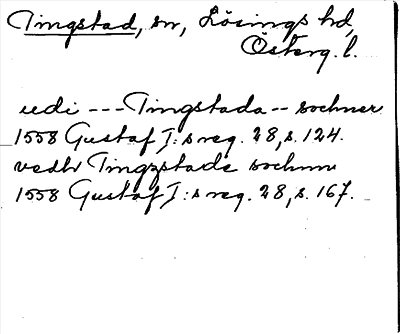 Tingstad, sn, Lösings hd,
Österg. l.
uedi --- Tingstada -- sochner
1558 Gustaf I:s reg. 28, s. 124.
vedh Tingzstade sochnn
1558 Gustaf I:s reg. 28, s. 167.